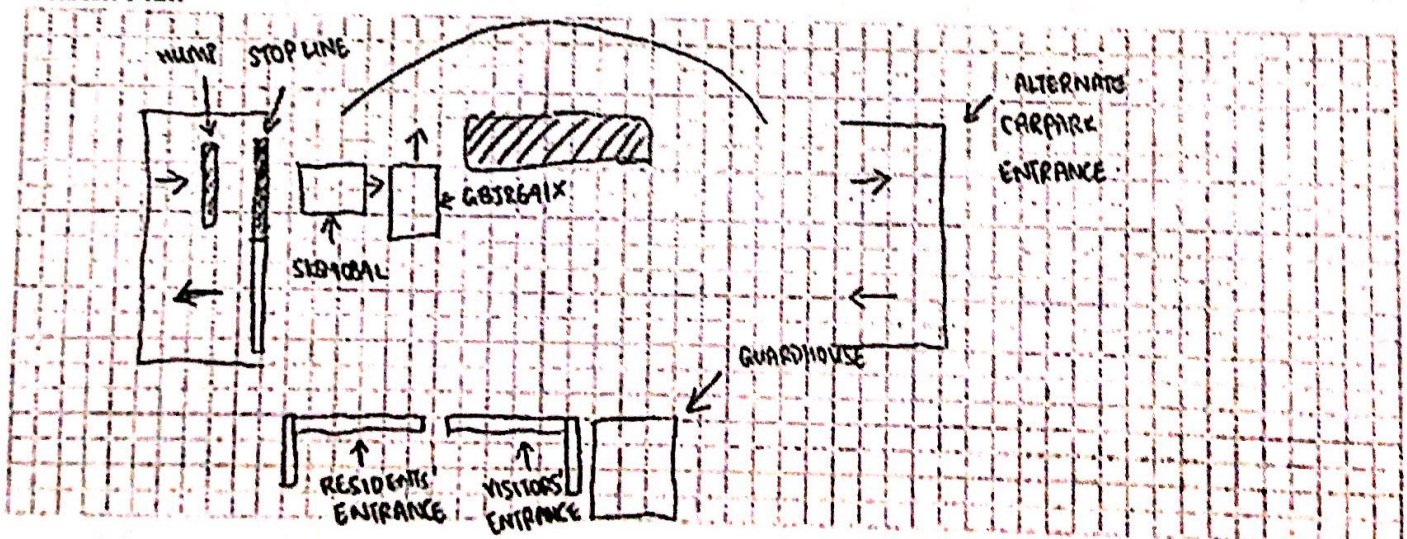 HUMP
STOP LINE
ALTERNATE
CARPARK
ENTRANCE
GBJ2641X
GUARDHOUSE
RESIDENTS'
ENTRANCE
VISITORS'
ENTRANCE